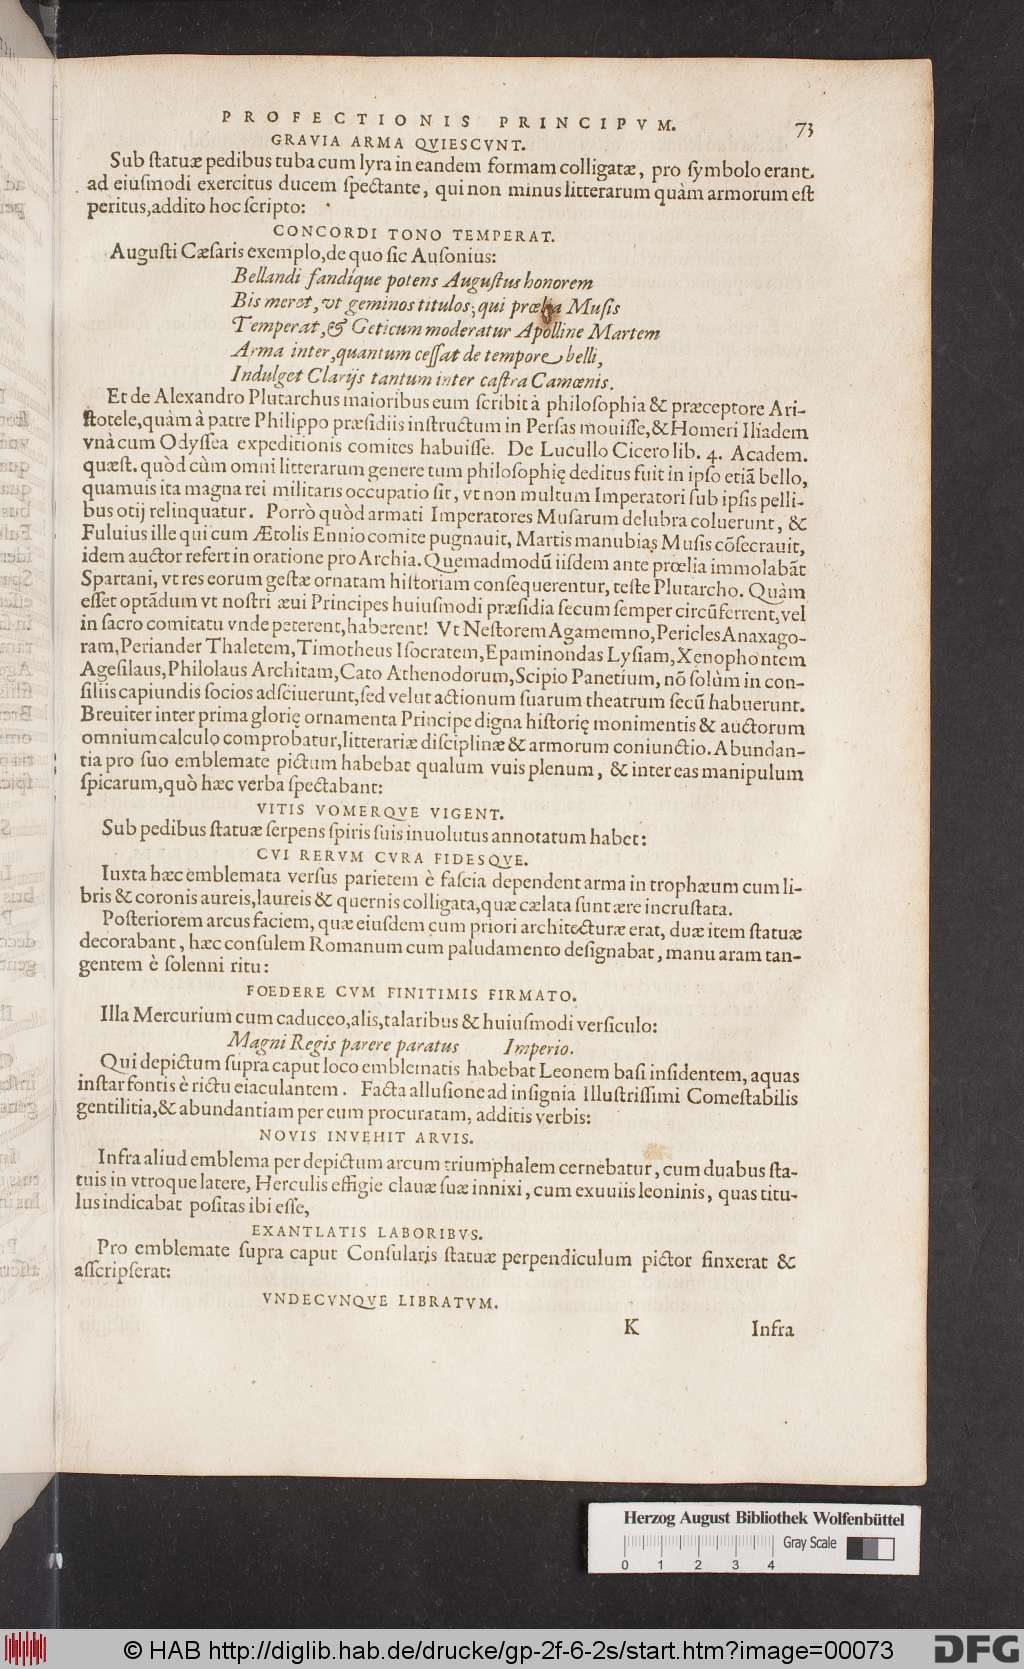 PROFECTIONIS PRINCIPVM. 73
GRAVIA ARMA QVIESCVNT.
Sub statuæ pedibus tuba cum lyra in eandem formam colligatæ, pro symbolo erant.
ad eiusmodi exercitus ducem spectante, qui non minus litterarum quàm armorum est
peritus, addito hoc scripto:
CONCORDI TONO TEMPERAT.
Augusti Cæsaris exemplo, de quo sic Ausonius:
Bellandi fandíque potens Augustus honorem
Bis meret, vt geminos titulos; qui prœlia Musis
Temperat, & Geticum moderatur Apolline Martem
Arma inter, quantum cessat de tempore belli,
Indulget Clarijs tantum inter castra Camœnis.
Et de Alexandro Plutarchus maioribus eum scribit à philosophia & præceptore Ari-
stotele, quàm à patre Philippo præsidiis instructum in Persas mouisse, & Homeri Iliadem
vnà cum Odyssea expeditionis comites habuisse. De Lucullo Cicero lib. 4. Academ.
quæst. quòd cùm omni litterarum genere tum philosophię deditus fuit in ipso etiã bello,
quamuis ita magna rei militaris occupatio sit, vt non multum Imperatori sub ipsis pelli-
bus otij relinquatur. Porrò quòd armati Imperatores Musarum delubra coluerunt, &
Fuluius ille qui cum Ætolis Ennio comite pugnauit, Martis manubias Musis cõsecrauit,
idem auctor refert in oratione pro Archia. Quemadmodũ iisdem ante prœlia immolabãt
Spartani, vt res eorum gestæ ornatam historiam consequerentur, teste Plutarcho. Quàm
esset optãdum vt nostri æui Principes huiusmodi præsidia secum semper circũferrent, vel
in sacro comitatu vnde peterent, haberent! Vt Nestorem Agamemno, Pericles Anaxago-
ram, Periander Thaletem, Timotheus Isocratem, Epaminondas Lysiam, Xenophontem
Agesilaus, Philolaus Architam, Cato Athenodorum, Scipio Panetium, nõ solùm in con-
siliis capiundis socios adsciuerunt, sed velut actionum suarum theatrum secũ habuerunt.
Breuiter inter prima glorię ornamenta Principe digna historię monimentis & auctorum
omnium calculo comprobatur, litterariæ disciplinæ & armorum coniunctio. Abundan-
tia pro suo emblemate pictum habebat qualum vuis plenum, & inter eas manipulum
spicarum, quò hæc verba spectabant:
VITIS VOMERQVE VIGENT.
Sub pedibus statuæ serpens spiris suis inuolutus annotatum habet:
CVI RERVM CVRA FIDESQVE.
Iuxta hæc emblemata versus parietem è fascia dependent arma in trophæum cum li-
bris & coronis aureis, laureis & quernis colligata, quæ cælata sunt ære incrustata.
Posteriorem arcus faciem, quæ eiusdem cum priori architecturæ erat, duæ item statuæ
decorabant, hæc consulem Romanum cum paludamento designabat, manu aram tan-
gentem è solenni ritu:
FOEDERE CVM FINITIMIS FIRMATO.
Illa Mercurium cum caduceo, alis, talaribus & huiusmodi versiculo:
Magni Regis parere paratus Imperio.
Qui depictum supra caput loco emblematis habebat Leonem basi insidentem, aquas
instar fontis è rictu eiaculantem. Facta allusione ad insignia Illustrissimi Comestabilis
gentilitia, & abundantiam per eum procuratam, additis verbis:
NOVIS INVEHIT ARVIS.
Infra aliud emblema per depictum arcum triumphalem cernebatur, cum duabus sta-
tuis in vtroque latere, Herculis effigie clauæ suæ innixi, cum exuuiis leoninis, quas titu-
lus indicabat positas ibi esse,
EXANTLATIS LABORIBVS.
Pro emblemate supra caput Consularis statuæ perpendiculum pictor finxerat &
asscripserat:
VNDECVNQVE LIBRATVM.
K Infra
Herzog August Bibliothek Wolfenbüttel
Gray Scale
0 1 2 3 4
© HAB http://diglib.hab.de/drucke/gp-2f-6-2s/start.htm?image=00073 DFG